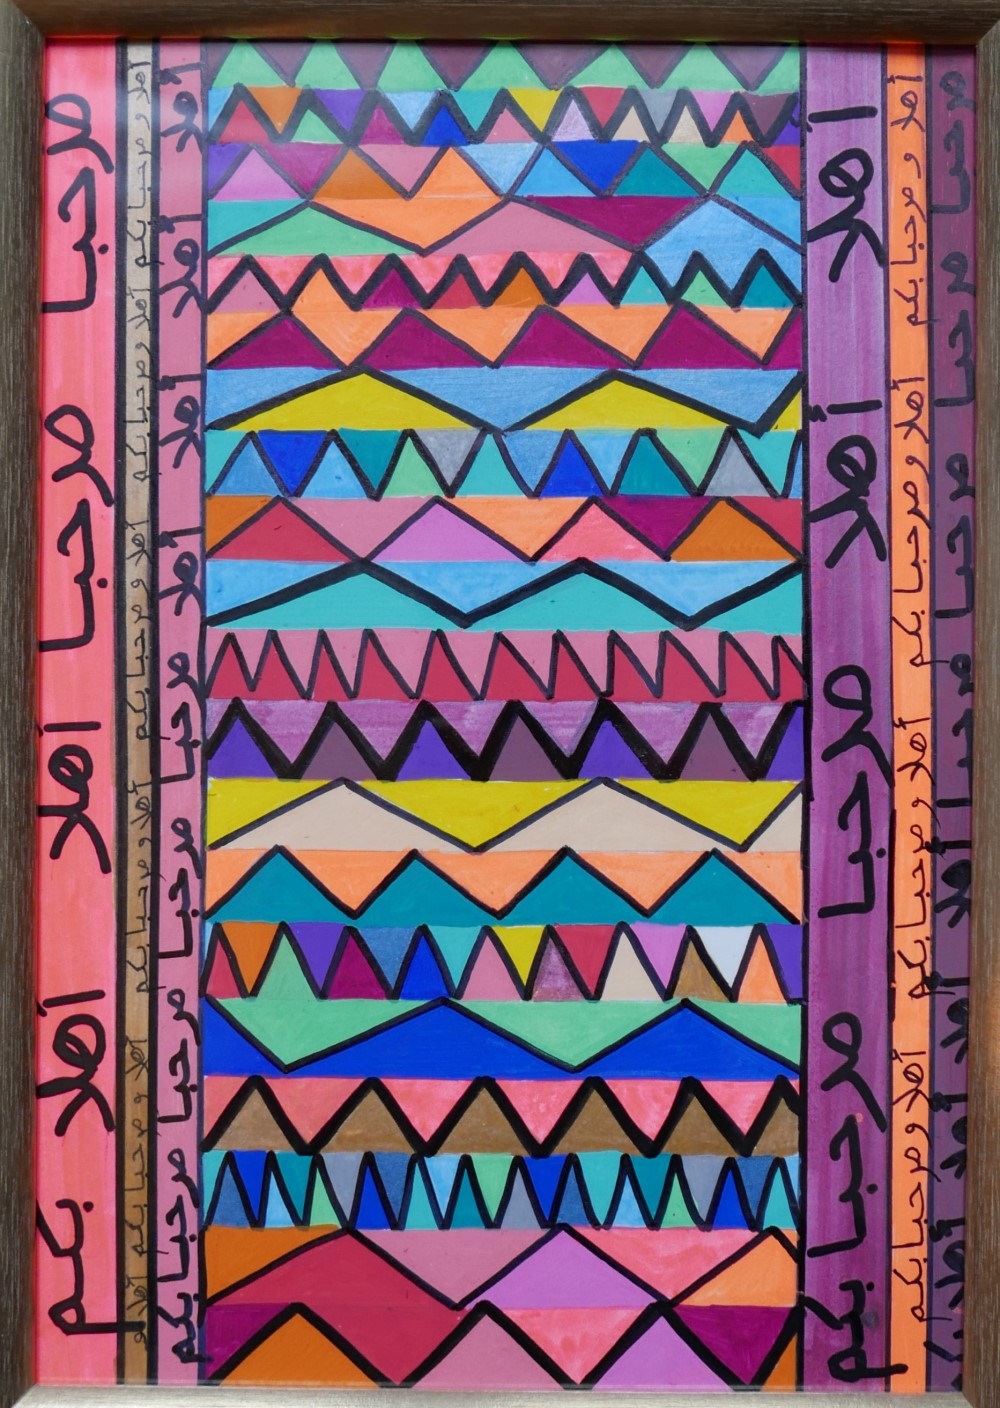 مرحبا مرحبا اهلا اهلا بكم
أهلا و مرحبا بكم أهلا و مرحبا بكم أهلا و مرحبا بكم أهلا و مرحبا بكم أهلا و مرحبا بكم أهلا و
أهلا أهلا أهلا أهلا مرحبا مرحبا مرحبا مرحبا بكم
أهلا أهلا مرحبا مرحبا بكم
أهلا و مرحبا بكم أهلا و مرحبا بكم أهلا و مرحبا بكم أهلا و مرحبا بكم
مرحبا مرحبا مرحبا مرحبا أهلا أهلا أهلا أهلا